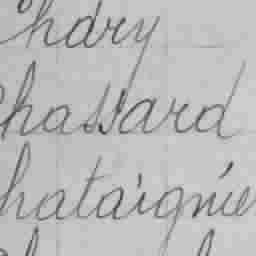 Chary
Chassard
Chataignie